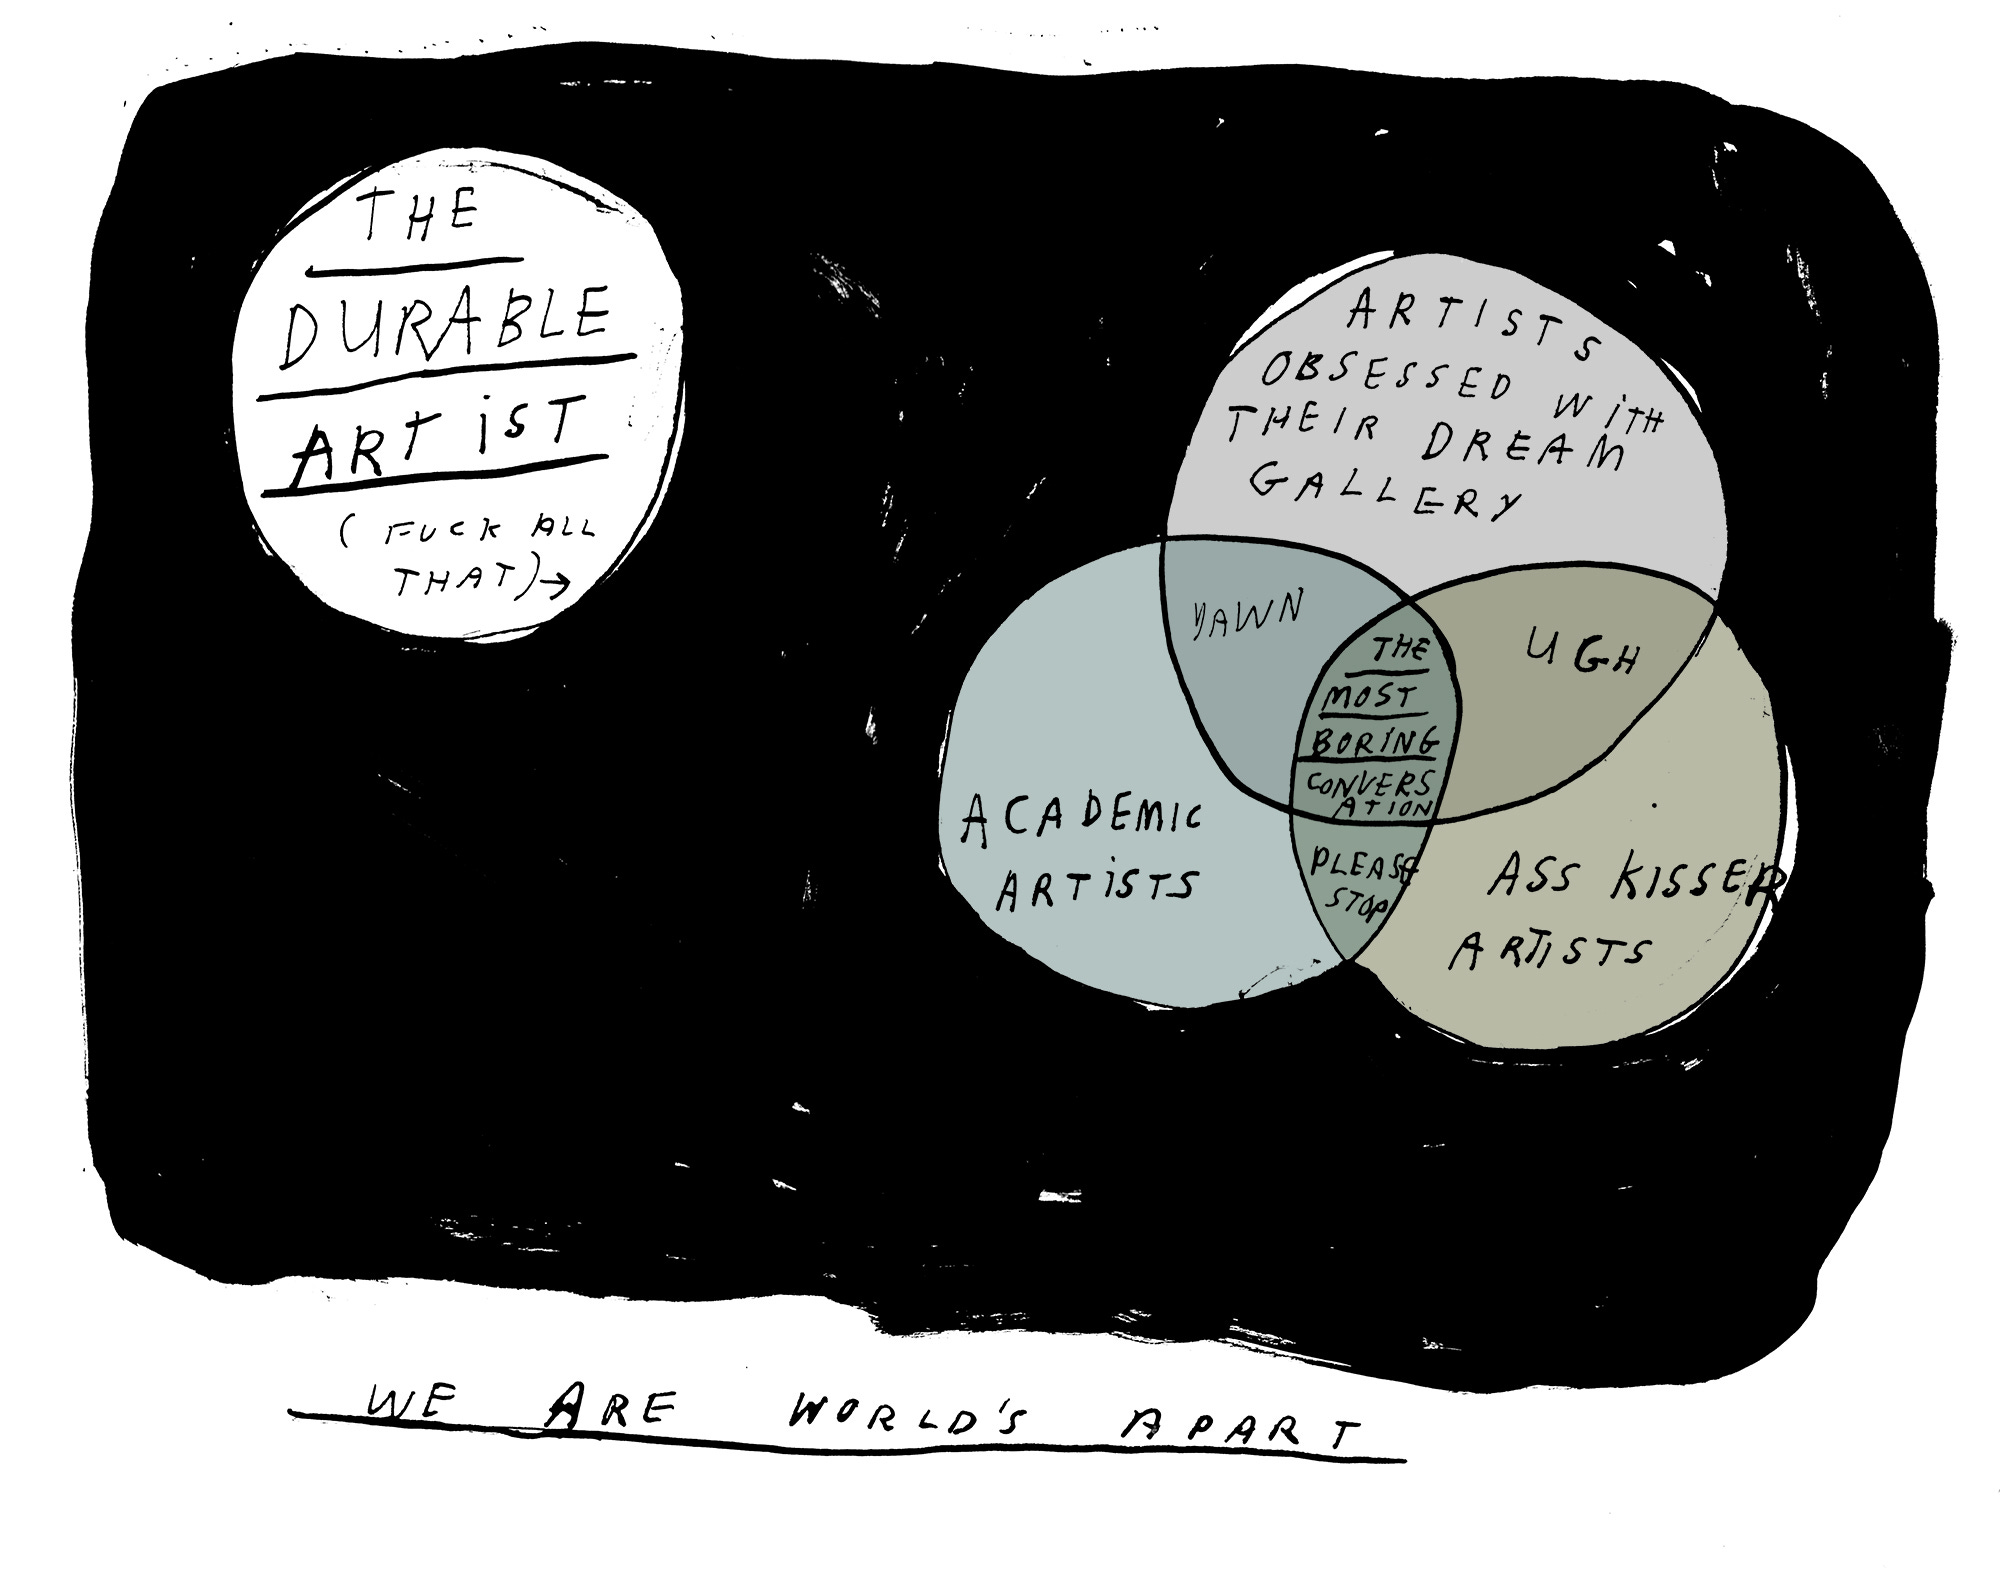 THE
DURABLE
ARTIST
( FUCK ALL
THAT) →
ARTISTS
OBSESSED WITH
THEIR DREAM
GALLERY
YAWN
UGH
THE
MOST
BORING
CONVERS
ATION
PLEASE
STOP
ACADEMIC
ARTISTS
ASS KISSER
ARTISTS
WE ARE WORLD'S APART